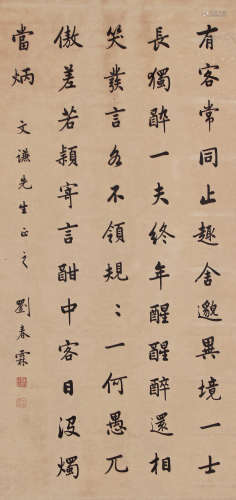 有客常同止趣舍邈異境一士
長獨酔一夫終年醒醒醉還相
笑發言各不領規〻一何愚兀
傲差若穎寄言酣中客日沒燭
當炳
文謙先生正之
劉春霖